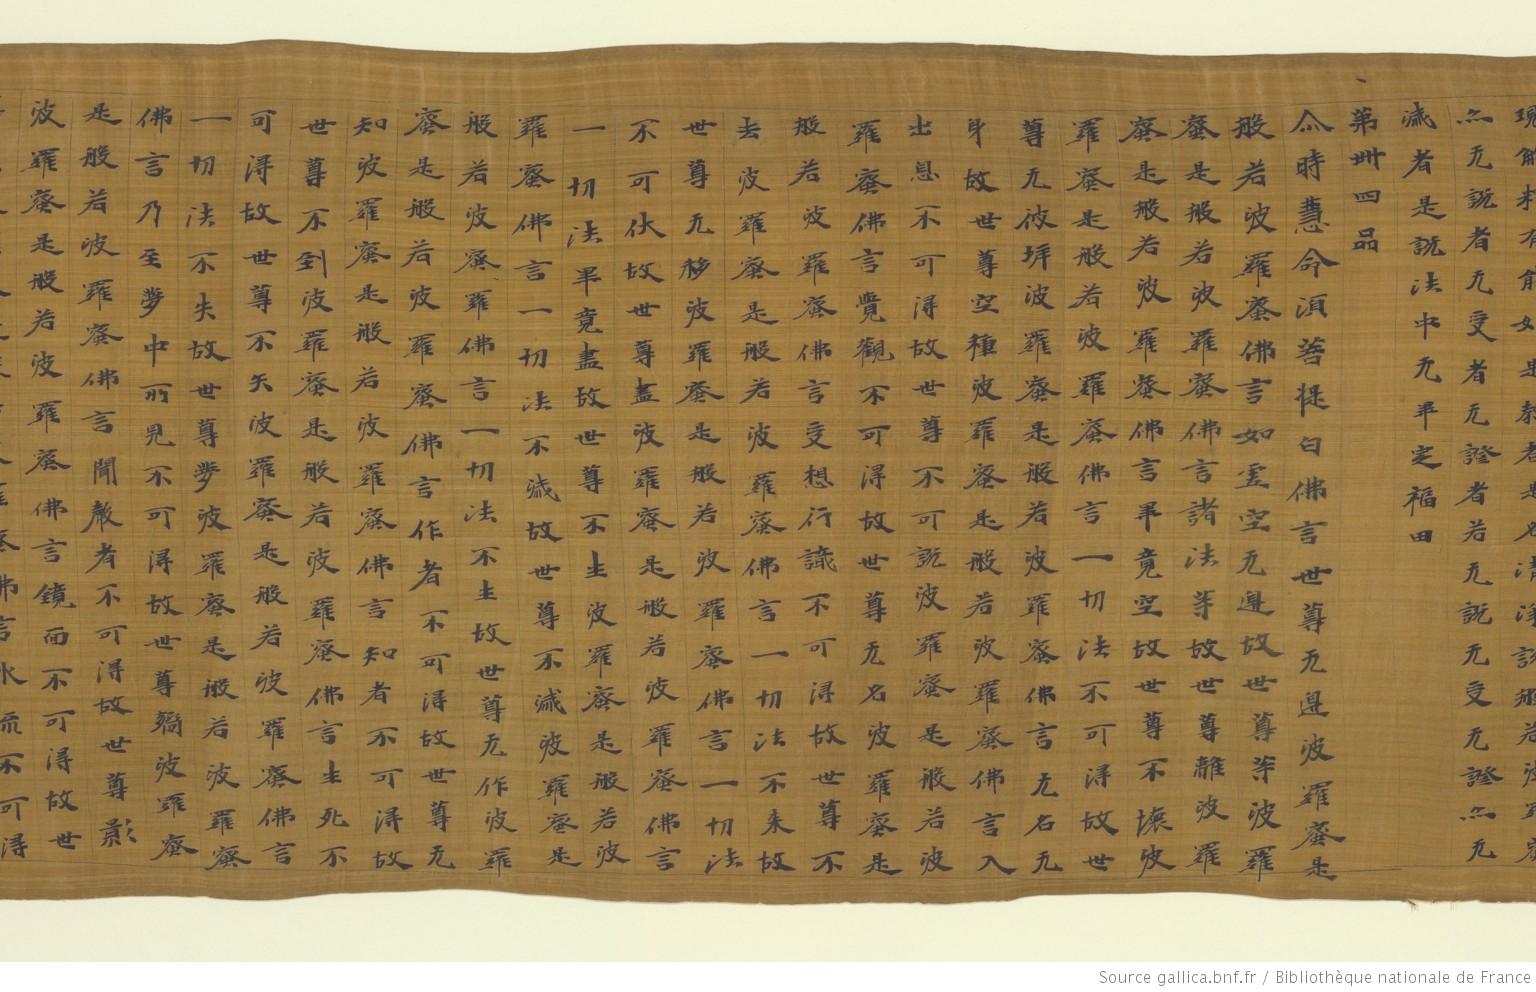 能如是教者是名清淨說般若波羅蜜
亦无說者无受者无證者若无說无受无證亦无
滅者是說法中无畢定福田
第卌四品
尒時慧命湏菩提白佛言世尊无邊波羅蜜是
般若波羅蜜佛言如虛空无邊故世尊等波羅
蜜是般若波羅蜜佛言諸法等故世尊離波羅
蜜是般若波羅蜜佛言畢竟空故世尊不壞波
羅蜜是般若波羅蜜佛言一切法不可得故世
尊无彼岸波羅蜜是般若波羅蜜佛言无名无
身故世尊空種波羅蜜是般若波羅蜜佛言入
出息不可得故世尊不可說波羅蜜是般若波
羅蜜佛言覺觀不可得故世尊无名波羅蜜是
般若波羅蜜佛言受想行識不可得故世尊不
去波羅蜜是般若波羅蜜佛言一切法不來故
世尊无移波羅蜜是般若波羅蜜佛言一切法
不可伏故世尊盡波羅蜜是般若波羅蜜佛言
一切法畢竟盡故世尊不生波羅蜜是般若波
羅蜜佛言一切法不滅故世尊不滅波羅蜜是
般若波蜜羅佛言一切法不生故世尊无作波羅
蜜是般若波羅蜜佛言作者不可得故世尊无
知波羅蜜是般若波羅蜜佛言知者不可得故
世尊不到波羅蜜是般若波羅蜜佛言生死不
可得故世尊不矢波羅蜜是般若波羅蜜佛言
一切法不失故世尊夢波羅蜜是般若波羅蜜
佛言乃至夢中所見不可得故世尊嚮波羅蜜
是般若波羅蜜佛言聞聲者不可得故世尊影
波羅蜜是般若波羅蜜佛言鏡面不可得故世
蜜佛言水流不可得
Source gallica.bnf.fr / Bibliothèque nationale de France